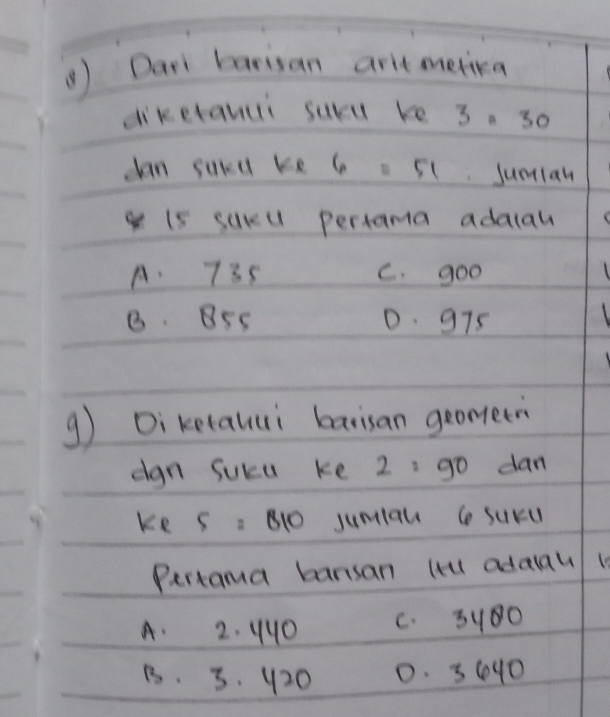 8) Dari barisan aritmetika
diketahui suku ke 3 = 30
dan suku ke 6 = 51. Jumlah
15 suku pertama adalah
A. 735 C. 900
B. 855 D. 975
9) Diketahui barisan geometri
dgn suku ke 2 = 90 dan
ke 5 = 810 jumlah 6 suku
Pertama barisan itu adalah
A. 2.440 C. 3480
B. 3.420 D. 3640